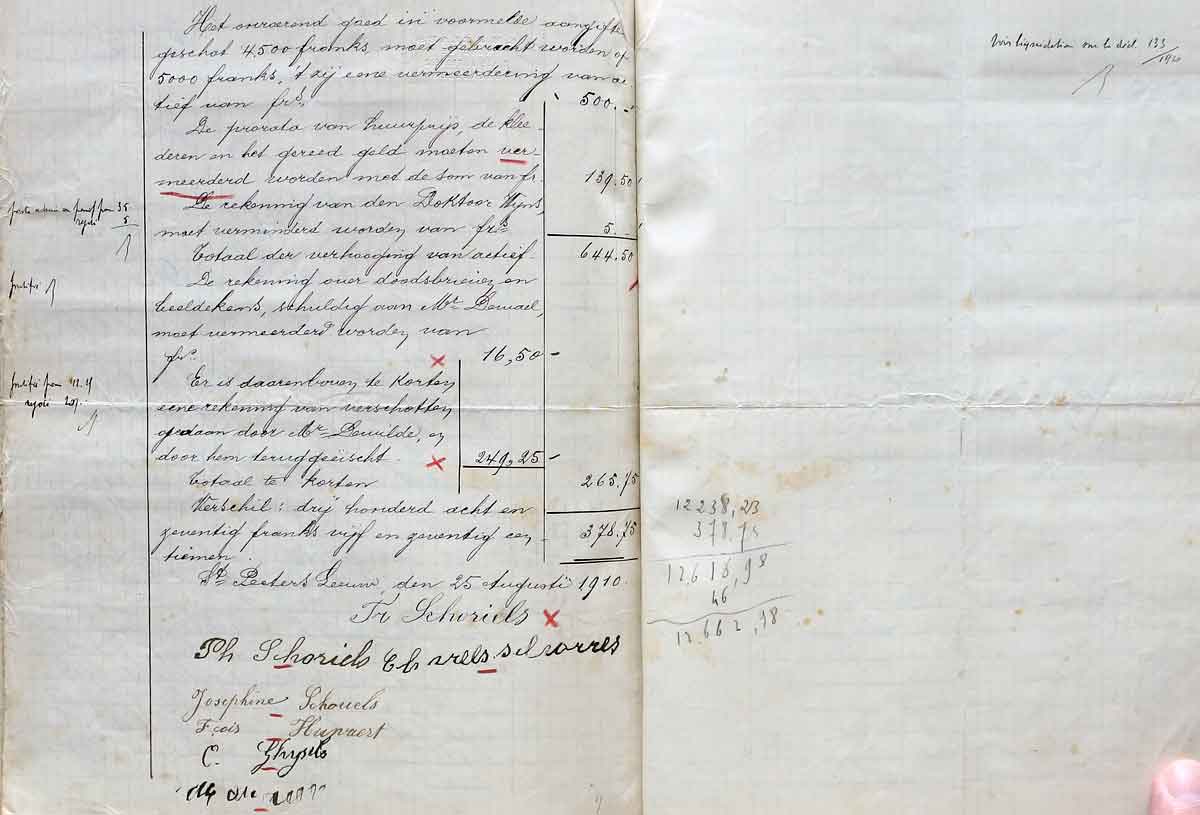 Het onroerend goed in voormelde aangifte
geschat 4,500 franks, moet gebracht worden op
5000 franks, 't zij eene vermeerdering van ac
tief van frs. 500.-
De prorata van huurprijs, de klee-
deren en het gereed geld moeten ver-
meerderd worden met de som van fr. 139.50
De rekening van den Doktoor Wijns,
moet verminderd worden van frs 5.-
Totaal der verhooging van actief. 644.50
De rekening over doodsbrieven en
beeldekens, schuldig aan Mr. Dewael,
moet vermeerderd worden van
frs. 16,50 -
Er is daarenboven te korten
eene rekening van verschotten
gedaan door Mr. Dewilde, en
door hem teruggeëischt. 249,25 -
Totaal te korten 265.75
Verschil: drij honderd acht en
zeventig franks vijf en zeventig cen
tiemen. 378.75
St. Peeters Leeuw, den 25 Augusti 1910.
Fr Schoriels
Ph Schoriels
Josephine Schouels
Fçois Hupaert
C. Ghysels
35
5
justifié
Voir liquidation sur le décl 133
/1910
12238,23
378,75
12616,98
46
12662,98